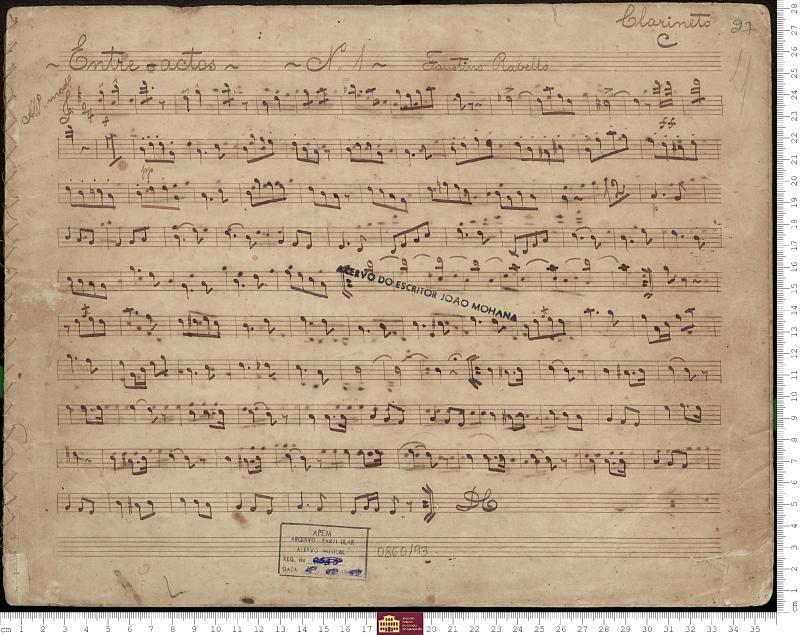 Clarineto
C
27
~ Entre-actos ~ ~ Nº 1 ~ Faustino Rabello
All.º mod.to
f
ff
pp
ACERVO DO ESCRITOR JOÃO MOHANA
DC
APEM
ARQUIVO PARTICULAR
ACERVO MUSICAL
REG. Nº
DATA
0860/93